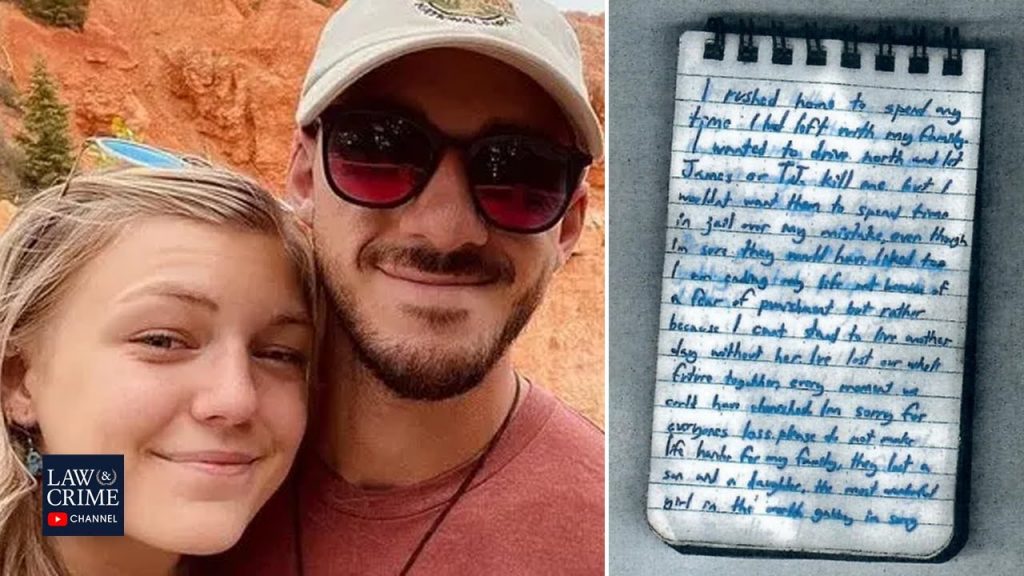 LAW &
CRIME
CHANNEL
I rushed home to spend any
time I had left with my family.
I wanted to drive north and let
James or TJ kill me but I
wouldn't want them to spend time
in jail over my mistake, even though
I'm sure they would have liked too
I am ending my life not because of
a fear of punishment but rather
because I can't stand to live another
day without her. I've lost our whole
future together, every moment we
could have cherished. I'm sorry for
everyones loss. please do not make
life harder for my family, they lost a
son and a daughter. the most wonderful
girl in the world. gabby im sorry